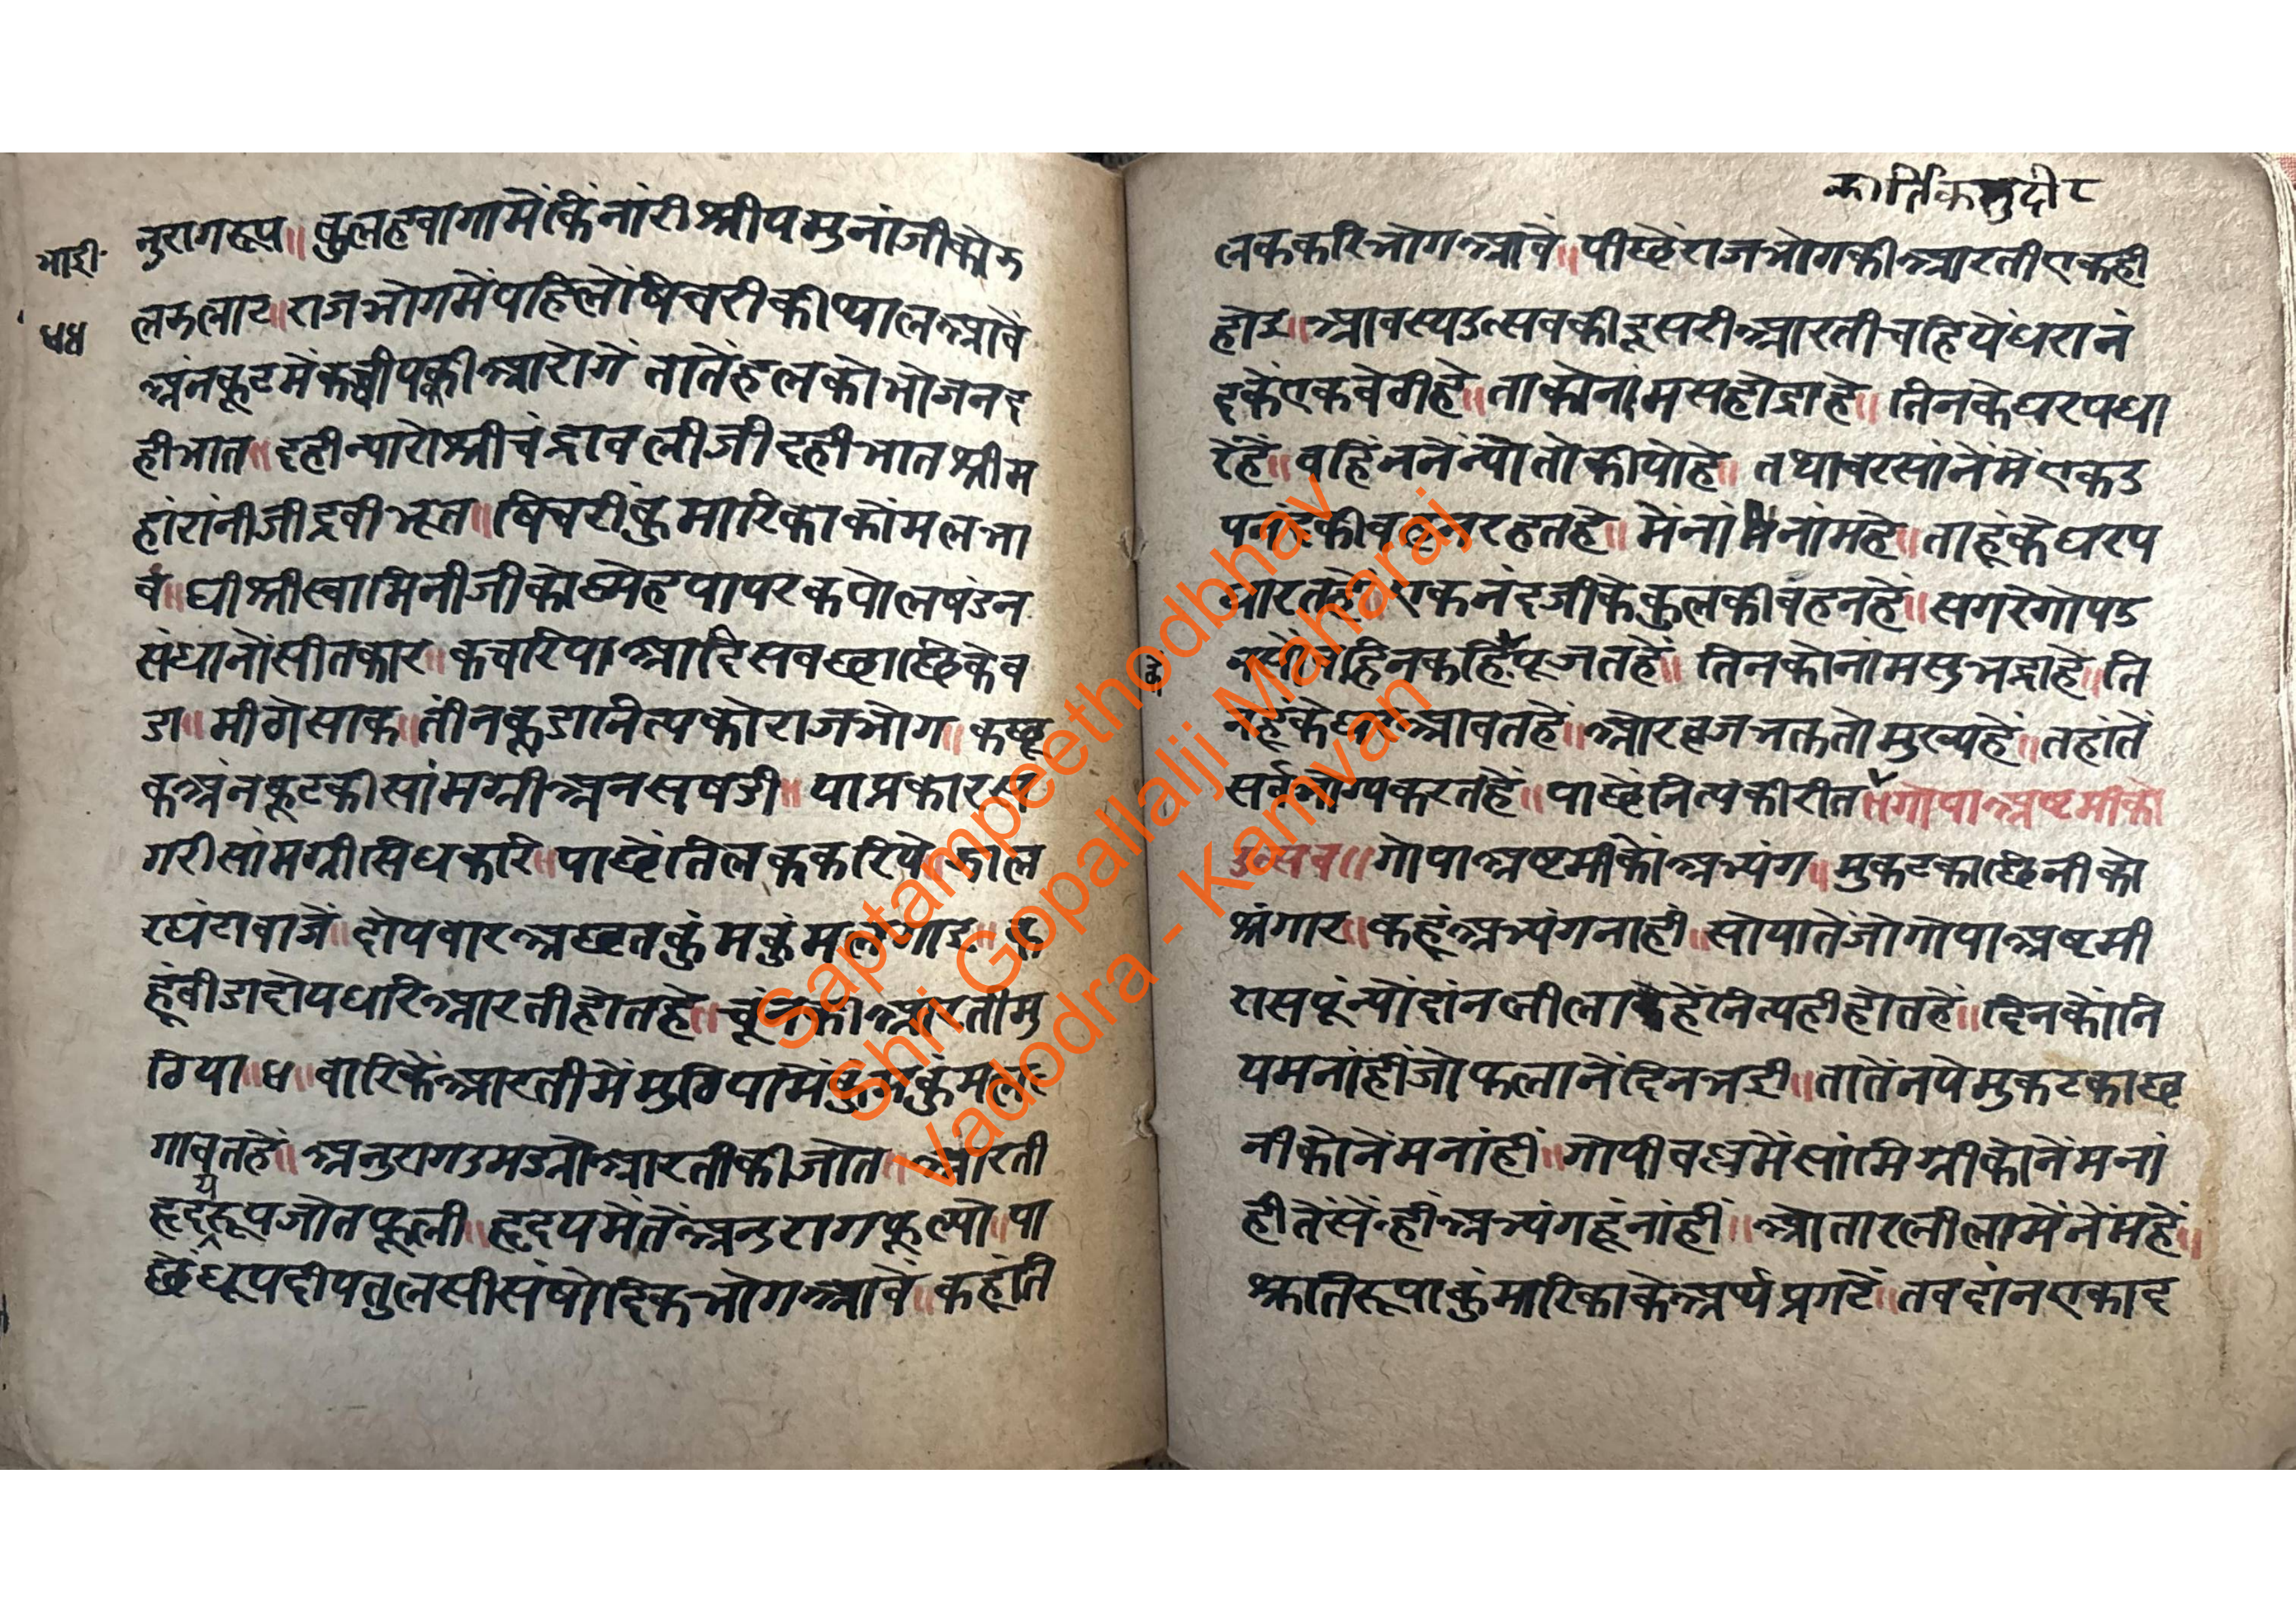 भारी
४४
नुरागरूप॥ कुलहवागामेंकिंनांरीश्रीयमुनांजीकोज
लजलाट॥राजभोगमेंपहिलोंषिचरीकीथालआवें
अंनकूटमेंकच्चीपक्कीआरोगें तातेंहलकोभोजनद
हीभात॥दहीन्यारोश्रीचंद्रावलीजीदहीभातश्रीम
हांरांनीजीद्रवीभूत॥षिचरीकुमारिकाकोमलभा
व॥घीश्रीस्वामिनीजीकोस्नेहपापरकपोलषंडन
संधानोंसीतकार॥कचरियाआदिसबछाछिकेव
डा॥मीठोसाक॥तीनकूडानित्यकोराजभोग॥कछू
कअंनकूटकीसांमग्रीअनसषडी॥याप्रकारस
गरीसांमग्रीसिधकरि॥पाछेंतिलककरिये॥झाल
रघंटावाजें॥दोयवारअछतकुंमकुंमलगाइ॥
हूंवीडादोयधरिआरतीहोतहे॥चूंनकीआरतीमु
ठिया॥४॥वारिकेंआरतीमेंमुठियामेंकुंमकुंमल
गावतहें॥अनुरागउमड्योआरतीकीजोत॥आरती
हृदयरूपजोतफूली॥हृदयमेंतेंअनुरागफूल्यो॥पा
छेंधूपदीपतुलसीसंषोदिकभोगआवें॥कहूंति
कार्तिकसुदी८
लककरिभोगआवें॥पीछेंराजभोगकीआरतीएकही
होइ॥आवस्यउत्सवकीदूसरीआरतीचहियेंधरानं
दकेंएकबेटीहे॥ताकोनांमसहोद्राहे॥तिनकेघरपधा
रेहें॥वहिंननेंन्योतोकीयोहे॥तथावरसांनेंमेंएकउ
पनंदकीवहनरहतहे॥मेंनांनांमहे॥ताहूंकेघरप
धारतहें॥एकनंदजीकेकुलकीवहनहे॥सगरेगोपउ
नसोंवहिनकहिपूजतहें॥तिनकोनांमसुभद्राहे॥ति
नहूंकेघरआवतहें॥औरव्रजभक्ततोमुख्यहें॥तहांतें
सर्वभोग्यकरतहें॥पाछेंनित्यकीरीत॥गोपाअष्टमीको
उत्सव॥गोपाअष्टमीकोंअभ्यंग॥मुकटकाछिनीको
श्रंगार॥कहूंअभ्यंगनाही॥सोयातेंजोगोपाअष्टमी
रासपूंन्योंदांनलीलाहेनित्यहीहोतहें॥दिनकोंनि
यमनांहींजोफलानेंदिनभई॥तातेंनयेमुकटकाछ
नीकोनेंमनांहीं॥गोपीवल्लभमेंसांमिग्रीकोनेमनां
हीतेंसेंहींअभ्यंगहूंनांहीं॥औतारलीलामेंनेंमहें॥
श्रुतिरूपाकुंमारिकाकेअर्थप्रगटे॥तवदांनएकाद